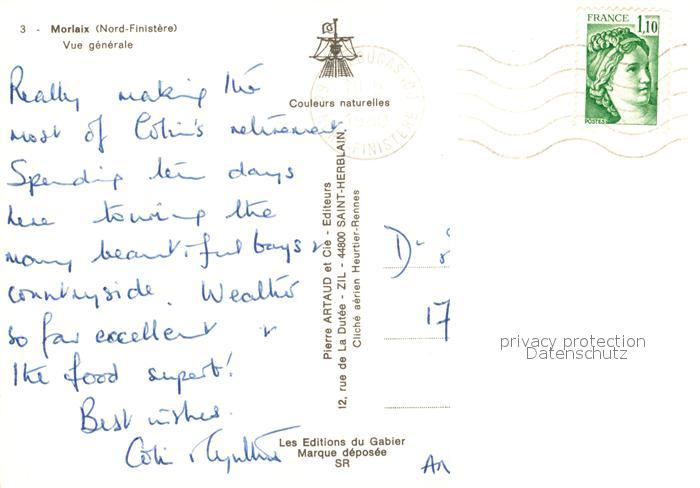 3 - Morlaix (Nord-Finistère)
Vue générale
Really making the
most of Colin's retirement.
Spending ten days
here touring the
many beautiful bays &
countryside. Weather
so far excellent &
the food superb!
Best wishes.
Colin & Cynthia
Couleurs naturelles
Pierre ARTAUD et Cie - Editeurs
12, rue de La Dutée - ZIL - 44800 SAINT-HERBLAIN
Cliché aérien Heurtier-Rennes
Les Editions du Gabier
Marque déposée
SR
FRANCE 1,10
POSTES
FINISTERE
Dr
17
privacy protection
Datenschutz